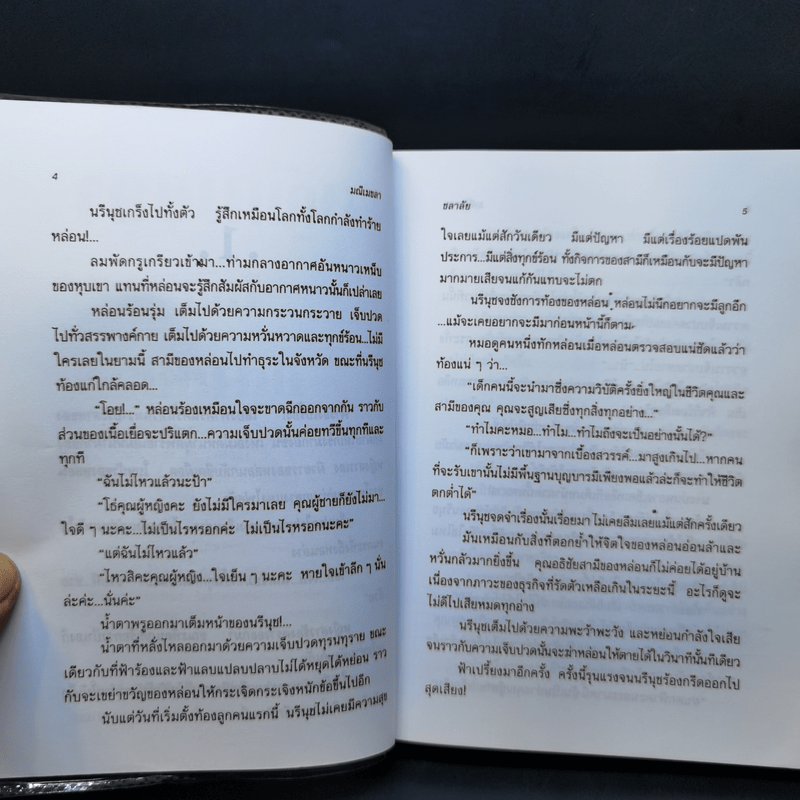 4
มณีเมขลา
นรีนุชเกร็งไปทั้งตัว รู้สึกเหมือนโลกทั้งโลกกำลังทำร้าย
หล่อน!...
ลมพัดกรูเกรียวเข้ามา...ท่ามกลางอากาศอันหนาวเหน็บ
ของหุบเขา แทนที่หล่อนจะรู้สึกสัมผัสกับอากาศหนาวนั้นก็เปล่าเลย
หล่อนร้อนรุ่ม เต็มไปด้วยความกระวนกระวาย เจ็บปวด
ไปทั่วสรรพางค์กาย เต็มไปด้วยความหวั่นหวาดและทุกข์ร้อน...ไม่มี
ใครเลยในยามนี้ สามีของหล่อนไปทำธุระในจังหวัด ขณะที่นรีนุช
ท้องแก่ใกล้คลอด...
“โอย!...” หล่อนร้องเหมือนใจจะขาดฉีกออกจากกัน ราวกับ
ส่วนของเนื้อเยื่อจะปริแตก...ความเจ็บปวดนั้นค่อยทวีขึ้นทุกทีและ
ทุกที
“ฉันไม่ไหวแล้วนะป้า”
“โธ่คุณผู้หญิงคะ ยังไม่มีใครมาเลย คุณผู้ชายก็ยังไม่มา...
ใจดี ๆ นะคะ...ไม่เป็นไรหรอกค่ะ ไม่เป็นไรหรอกนะคะ”
“แต่ฉันไม่ไหวแล้ว”
“ไหวสิคะคุณผู้หญิง...ใจเย็น ๆ นะคะ หายใจเข้าลึก ๆ นั่น
ล่ะค่ะ...นั่นค่ะ”
น้ำตาพรูออกมาเต็มหน้าของนรีนุช!...
น้ำตาที่หลั่งไหลออกมาด้วยความเจ็บปวดทุรนทุราย ขณะ
เดียวกับที่ฟ้าร้องและฟ้าแลบแปลบปลาบไม่ได้หยุดได้หย่อน ราว
กับจะเขย่าขวัญของหล่อนให้กระเจิดกระเจิงหนักข้อขึ้นไปอีก
นับแต่วันที่เริ่มตั้งท้องลูกคนแรกนี้ นรีนุชไม่เคยมีความสุข
ชลาลัย
5
ใจเลยแม้แต่สักวันเดียว มีแต่ปัญหา มีแต่เรื่องร้อยแปดพัน
ประการ...มีแต่สิ่งทุกข์ร้อน ทั้งกิจการของสามีก็เหมือนกับจะมีปัญหา
มากมายเสียจนแก้กันแทบจะไม่ตก
นรีนุชจงชังการท้องของหล่อน หล่อนไม่นึกอยากจะมีลูกอีก
...แม้จะเคยอยากจะมีมาก่อนหน้านี้ก็ตาม
หมอดูคนหนึ่งทักหล่อนเมื่อหล่อนตรวจสอบแน่ชัดแล้วว่า
ท้องแน่ ๆ ว่า...
“เด็กคนนี้จะนำมาซึ่งความวิบัติครั้งยิ่งใหญ่ในชีวิตคุณและ
สามีของคุณ คุณจะสูญเสียซึ่งทุกสิ่งทุกอย่าง...”
“ทำไมคะหมอ...ทำไม...ทำไมถึงจะเป็นอย่างนั้นได้?”
“ก็เพราะว่าเขามาจากเบื้องสวรรค์...มาสูงเกินไป...หากคน
ที่จะรับเขานั้นไม่มีพื้นฐานบุญบารมีเพียงพอแล้วล่ะก็จะทำให้ชีวิต
ตกต่ำได้”
นรีนุชจดจำเรื่องนั้นเรื่อยมา ไม่เคยลืมเลยแม้แต่สักครั้งเดียว
มันเหมือนกับสิ่งที่ตอกย้ำให้จิตใจของหล่อนอ่อนล้าและ
หวั่นกลัวมากยิ่งขึ้น คุณอธิชัยสามีของหล่อนก็ไม่ค่อยได้อยู่บ้าน
เนื่องจากภาวะของธุรกิจที่รัดตัวเหลือเกินในระยะนี้ อะไรก็ดูจะ
ไม่ดีไปเสียหมดทุกอย่าง
นรีนุชเต็มไปด้วยความพะว้าพะวัง และหย่อนกำลังใจเสีย
จนราวกับความเจ็บปวดนั้นจะฆ่าหล่อนให้ตายได้ในวินาทีนั้นทีเดียว
ฟ้าเปรี้ยงมาอีกครั้ง ครั้งนี้รุนแรงจนนรีนุชร้องกรีดออกไป
สุดเสียง!